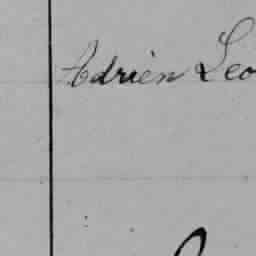 Adrien Leo